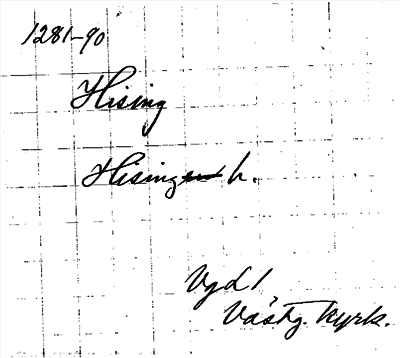 1281-90
Hising
Hising h.
Vgd 1
Västg. kyrk.